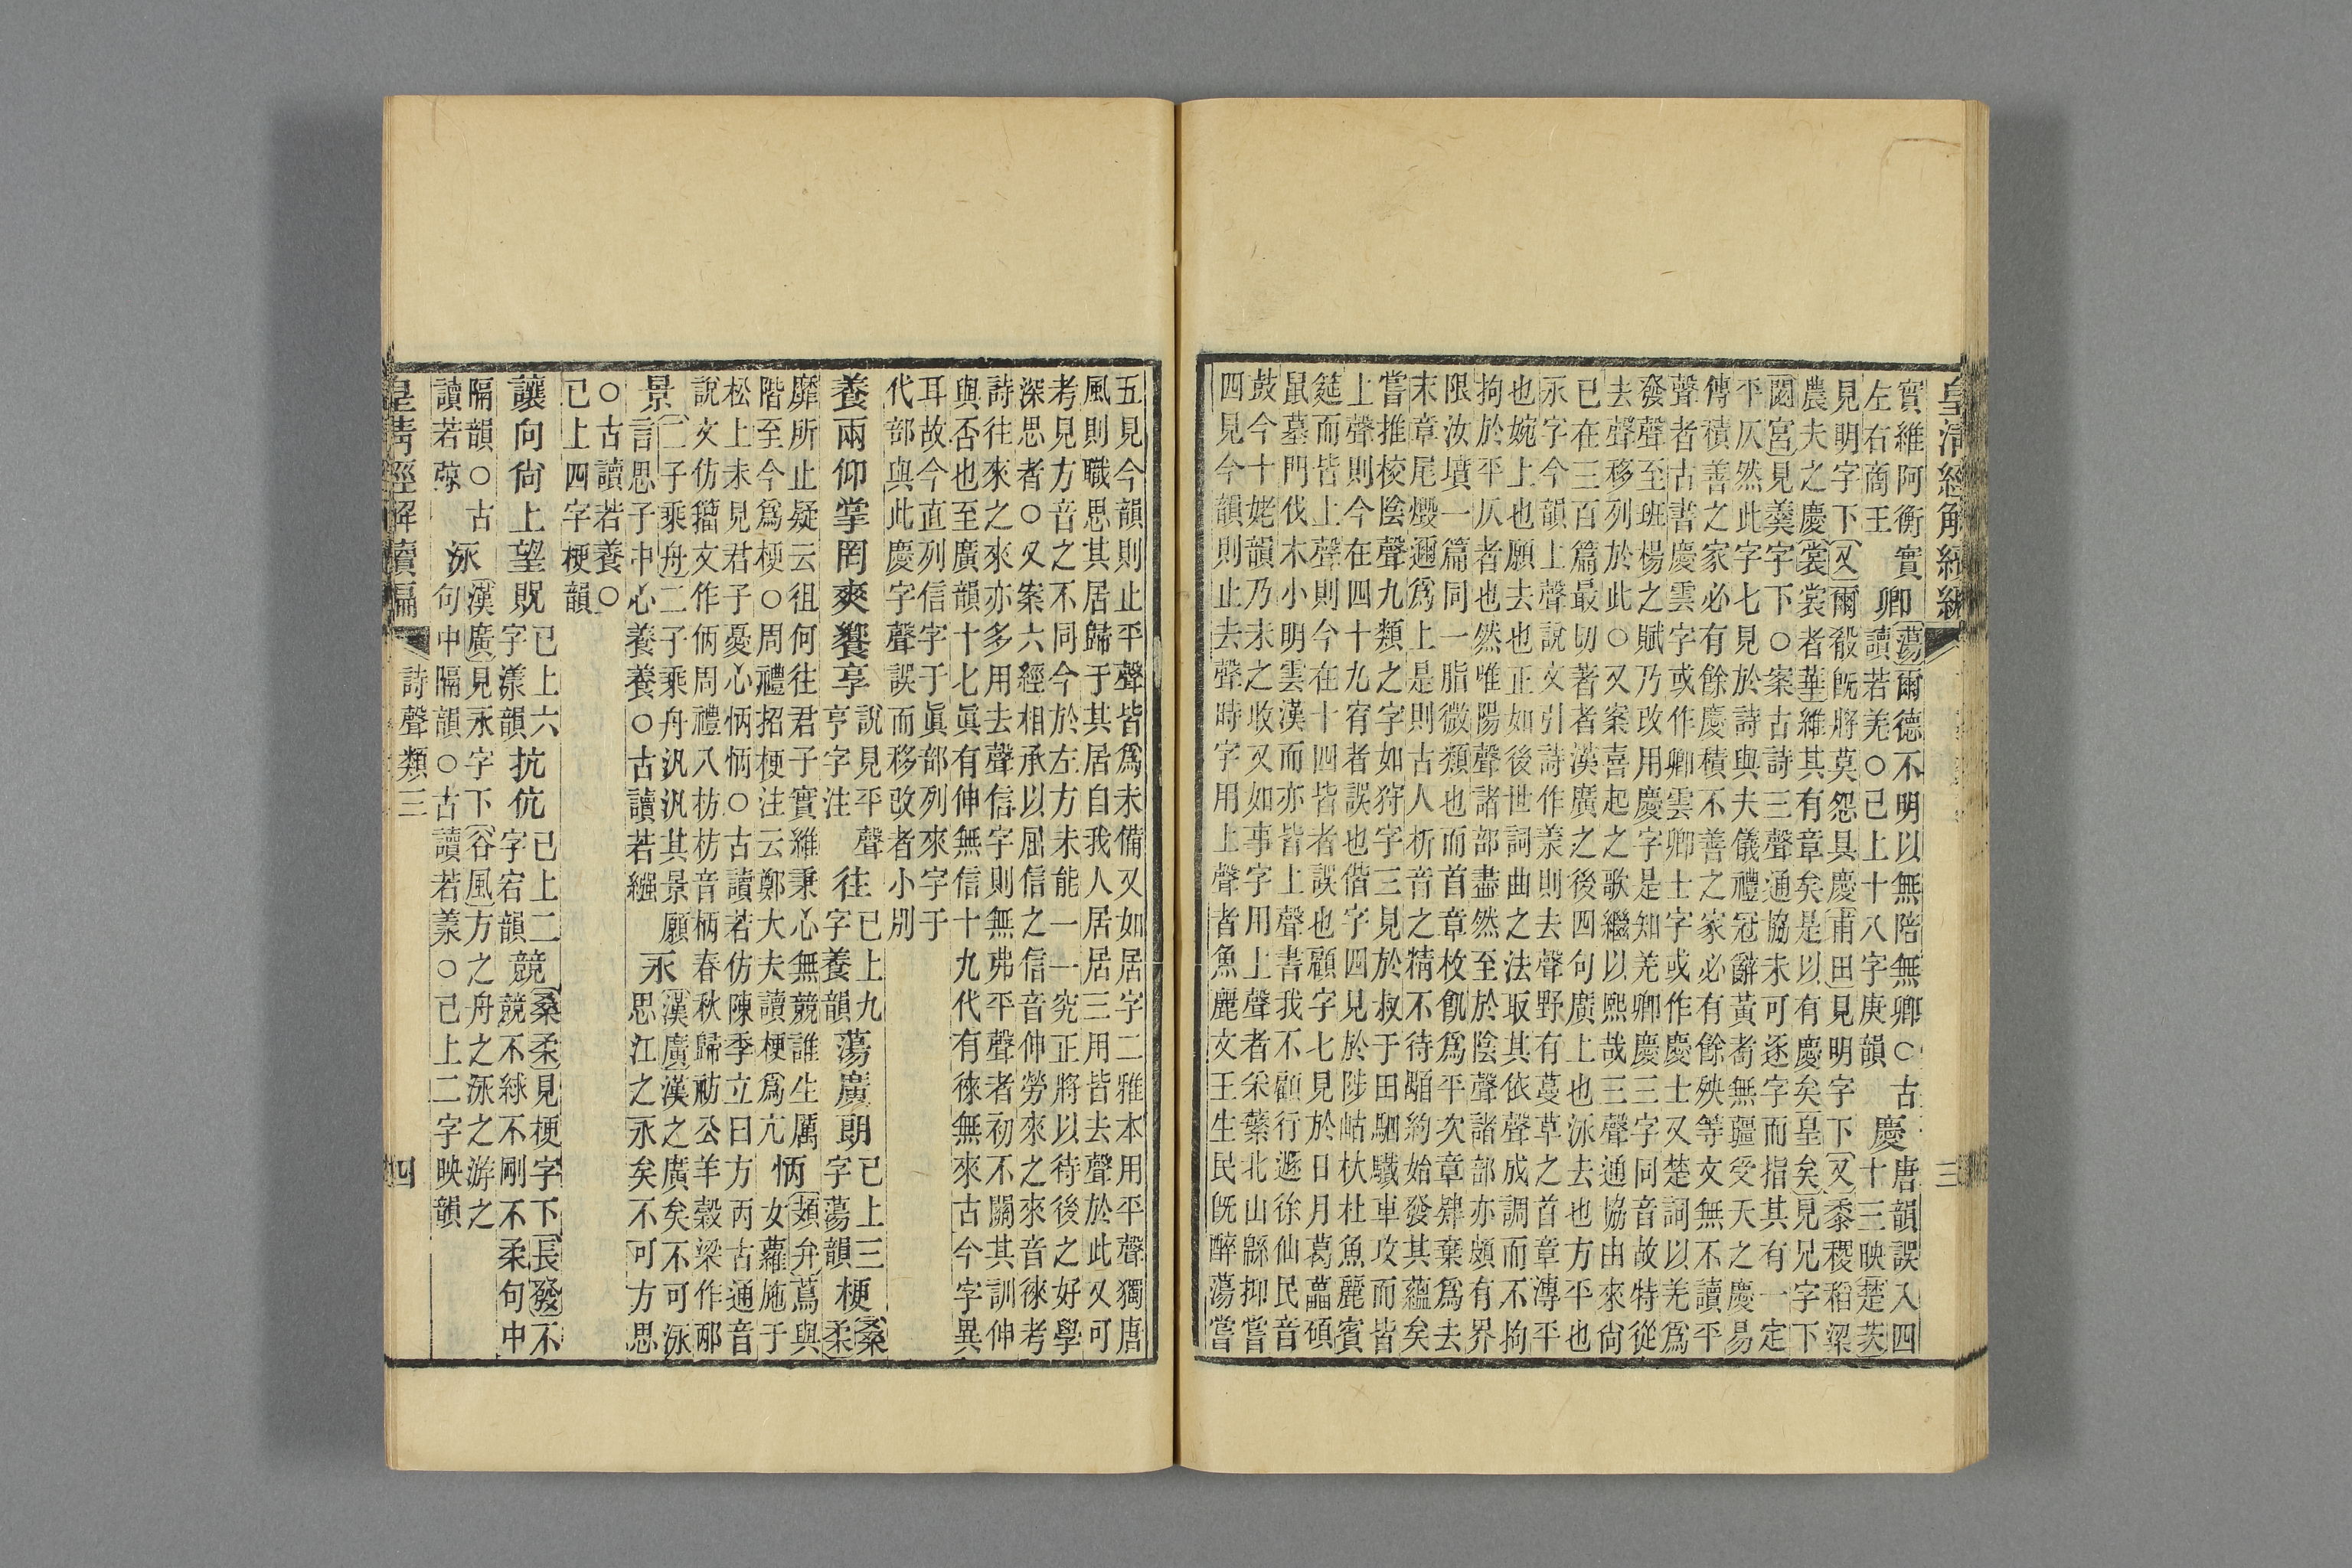 皇清經解續編
三
實維阿衡實
左右商王
卿
蕩爾德不明以無陪無卿○古
讀若羌○已上十八字庚韻
慶
唐韻誤入四
十三映楚茨
見明字下又爾殽旣將莫怨具慶甫田見明字下又黍稷稻粱
農夫之慶裳裳者華維其有章矣是以有慶矣皇矣見兄字下
閟宮見羹字下○案古詩三聲通協未可逐字而指其有一定
平仄然此字七見於詩與夫儀禮冠辭黃耇無疆受天之慶易
傳積善之家必有餘慶積不善之家必有餘殃等文無不讀平
聲者古書慶雲字或作卿雲卿士字或作慶士又楚詞以羌爲
發聲至班楊之賦乃改用慶字是知羌卿慶三字同音故特從
去聲移列於此○又案喜起之歌繼以熙哉三聲通協由來尙
已在三百篇最切著者漢廣之後四句廣上也泳去也方平也
永字今韻上聲說文引詩作羕則去聲野有蔓草之首章漙平
也婉上也願去也正如後世詞曲之法取其依聲成調而不拘
拘於平仄者也然唯陽聲諸部盡然至於陰聲諸部亦頗有界
限汝墳一篇同一脂微類也而首章枚飢爲平次章肄棄爲去
末章尾燬邇爲上是則古人析音之精不待約始發其蘊矣
嘗推校陰聲九類之字如狩字三見於叔于田駟驖車攻而皆
上聲則今在四十九宥者誤也偕字四見於陟岵杕杜魚麗賓
筵而皆上聲則今在十四皆者誤也顧字七見於日月葛藟碩
鼠墓門伐木小明雲漢而亦皆上聲書我不顧行遯徐仙民音
鼓今十姥韻乃未之收又如事字用上聲者采蘩北山緜抑嘗
四見今韻則止去聲時字用上聲者魚麗文王生民旣醉蕩嘗
五見今韻則止平聲皆爲未備又如居字二雅本用平聲獨唐
風則職思其居歸于其居自我人居居三用皆去聲於此又可
考見方音之不同今於左方未能一一究正將以待後之好學
深思者○又案六經相承以屈信之信音伸勞來之來音徠考
詩往來之來亦多用去聲信字則無弗平聲者初不關其訓伸
與否也至廣韻十七眞有伸無信十九代有徠無來古今字異
耳故今直列信字于眞部列來字于
代部與此慶字聲誤而移改者小別
養兩仰掌罔爽饗享
說見平聲
亨字注
往
已上九
字養韻
蕩廣朗
已上三
字蕩韻
梗
桑
柔
靡所止疑云徂何往君子實維秉心無競誰生厲
階至今爲梗○周禮招梗注云鄭大夫讀梗爲亢
怲
頍弁蔦與
女蘿施于
松上未見君子憂心怲怲○古讀若仿陳季立曰方丙古通音
說文仿籀文作㑂周禮八枋枋音柄春秋歸祊公羊穀梁作邴
景
二子乘舟二子乘舟汎汎其景願
言思子中心養養○古讀若繈
永
漢廣漢之廣矣不可泳
思江之永矣不可方思
○古讀若養○
已上四字梗韻
讓向尙上望貺
已上六
字漾韻
抗伉
已上二
字宕韻
競
桑柔見梗字下長發不
競不絿不剛不柔句中
隔韻○古
讀若弶
泳
漢廣見永字下谷風方之舟之泳之游之
句中隔韻○古讀若羕○已上二字映韻
皇清經解續編
詩聲類三
四